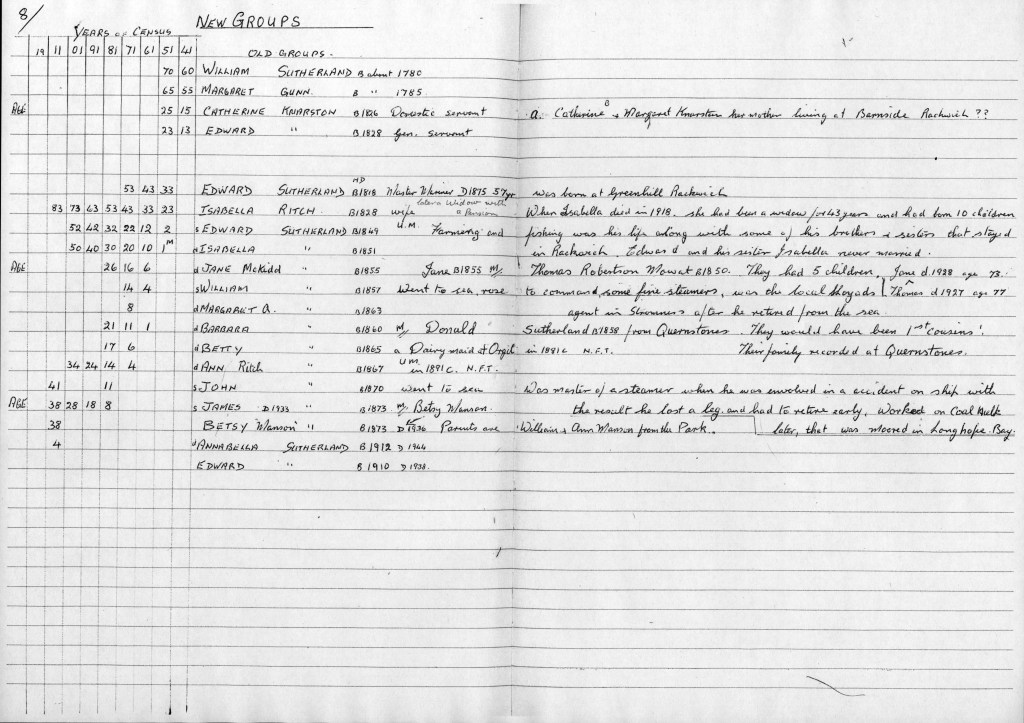 8/ NEW GROUPS
YEARS OF CENSUS
19 11 01 91 81 71 61 51 41 OLD GROUPS.
70 60 WILLIAM SUTHERLAND B about 1780
65 55 MARGARET GUNN. B " 1785.
AGE 25 15 CATHERINE KNARSTON B1826 Domestic servant a. Catherine & Margaret B Knarston her mother living at Barnside Rackwich ??
23 13 EDWARD " B1828 Gen. servant
53 43 33 EDWARD SUTHERLAND HD B1818 Master Mariner D1875 57yr was born at Greenhill Rackwich
83 73 63 53 43 33 23 ISABELLA RITCH. B1828 wife later a Widow with a Pension When Isabella died in 1918. she had been a widow for 43 years and had born 10 children
52 42 32 22 12 2 s EDWARD SUTHERLAND B1849 U.M. Farmering and fishing was his life along with some of his brothers & sisters that stayed
50 40 30 20 10 1M d ISABELLA " B1851 in Rackwich Edward and his sister Isabella never married.
AGE 26 16 6 d JANE McKidd " B1855 Jane B1855 M/ Thomas Robertson Mowat B1850. They had 5 children, Jane d 1928 age 73.
14 4 s WILLIAM " B1857 went to sea, rose to command some fine steamers, was the local Lloyads Thomas d 1927 age 77
8 d MARGARET A. " B1863 agent in Stromness after he retired from the sea.
21 11 1 d BARBARA " B1860 M/ Donald Sutherland B1858 from Quernstones. They would have been 1st cousins!
17 6 d BETTY " B1865 a Dairy maid at Orgil in 1891c N.F.T. Their family recorded at Quernstones.
34 24 14 4 d ANN Ritch " B1867 U.M. in 1891C. N.F.T.
41 11 s JOHN " B1870 went to sea Was master of a steamer when he was involved in a accident on ship with
AGE 38 28 18 8 s JAMES D 1933 " B1873 M/ Betsy Manson. the result he lost a leg and had to retire early, Worked on Coal Hulk
38 BETSY Manson " B1873 D 1936 Parents are William & Ann Manson from the Park. later, that was moored in Longhope Bay.
4 d ANNABELLA SUTHERLAND B 1912 D 1944
EDWARD " B 1910 D 1938.